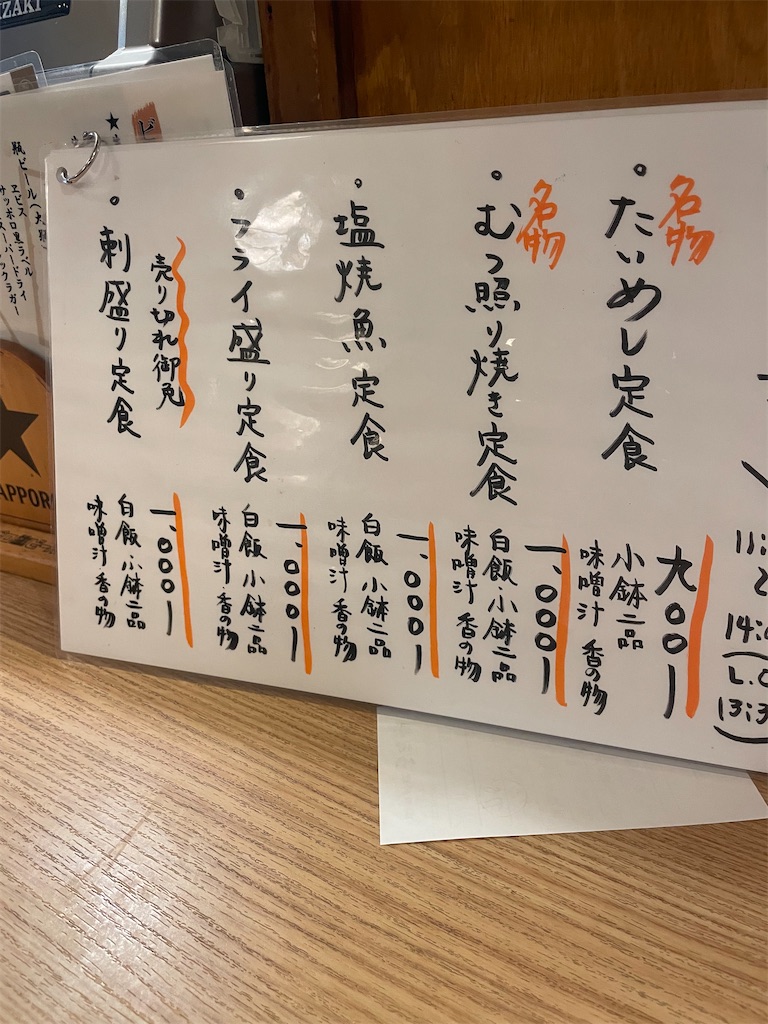 名物
・たいめし定食
九〇〇ー
小鉢二品
味噌汁 香の物
名物
・むつ照り焼き定食
一、〇〇〇ー
白飯・小鉢二品
味噌汁 香の物
・塩焼魚定食
一、〇〇〇ー
白飯 小鉢二品
味噌汁 香の物
・フライ盛り定食
一、〇〇〇ー
白飯 小鉢二品
味噌汁 香の物
売り切れ御免
・刺盛り定食
一、〇〇〇ー
白飯 小鉢二品
味噌汁 香の物
11:
14:
L.O
13:3
★
ビ
瓶ビール(大瓶
ヱビス
サッポロ黒ラベル
スーパードライ
ックラガー
APPORO
IZAKI